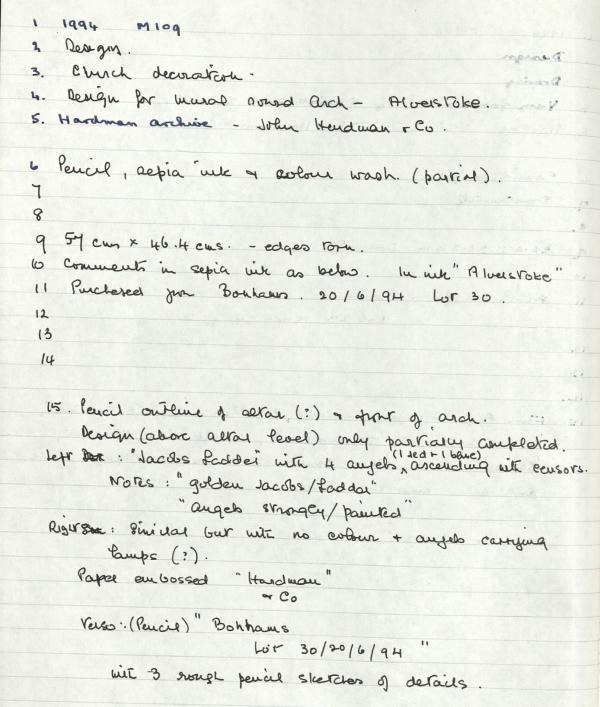 1 1994 M109
2 Design.
3. Church decoration.
4. Design for mural round arch - Alverstoke.
5. Hardman archive - John Hardman & Co.
6 Pencil, sepia ink & colour wash. (partial).
7
8
9 57 cms x 46.4 cms. - edges torn.
10 Comments in sepia ink as below. In ink "Alverstoke"
11 Purchased from Bonhams. 20/6/94 Lot 30.
12
13
14
15. Pencil outline of altar (?) & front of arch.
Design (above altar level) only partially completed.
Left : "Jacobs Ladder" with 4 angels (1 red + 1 blue) ascending with censors.
Notes : "golden Jacobs/Ladder"
"angels strongly/painted"
Right : Similar but with no colour & angels carrying
lamps (?).
Paper embossed "Hardman"
& Co
Verso : (Pencil) "Bonhams
Lot 30/20/6/94 "
with 3 rough pencil sketches of details.